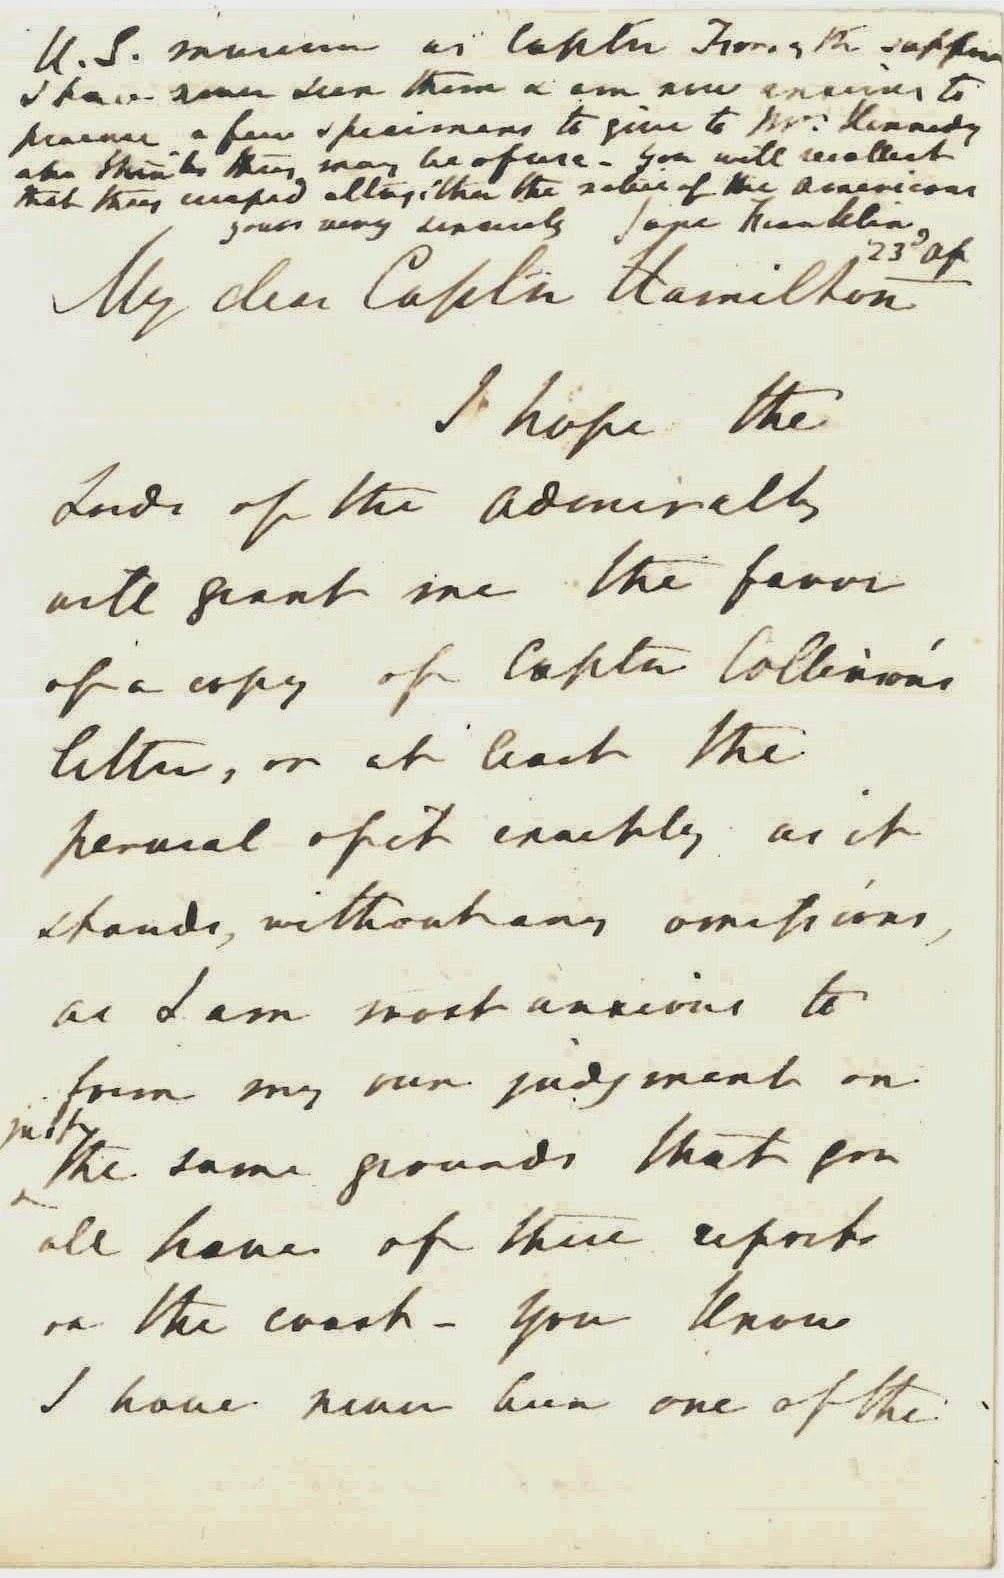 U. S. museum as Captn Forsyth suppose
I have never seen them & am now anxious to
procure a few specimens to give to Mr. Kennedy
who thinks they may be of use - You will recollect
that they escaped altogether the notice of the Americans
yours very sincerely Jane Franklin
23d Ap
My dear Captn Hamilton
I hope the
Lords of the Admiralty
will grant me the favor
of a copy of Captn Collinson's
letter, or at least the
perusal of it exactly as it
stands, without any omissions,
as I am most anxious to
form my own judgment on
just
the same grounds that you
all have of these reports
on the coast - You know
I have never been one of the